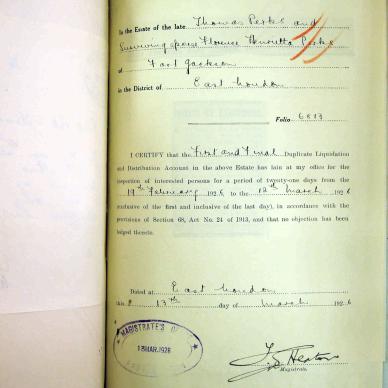 In the Estate of the late Thomas Perks and
Surviving spouse Florence Henrietta Perks
of Fort Jackson
in the District of East London
Folio 6813
I CERTIFY that the First and Final Duplicate Liquidation
and Distribution Account in the above Estate has lain at my office for the
inspection of interested persons for a period of twenty-one days from the
19th February 1926 to the 12th March 1926
(exclusive of the first and inclusive of the last day), in accordance with the
provisions of Section 68, Act No. 24 of 1913, and that no objection has been
lodged thereto.
Dated at East London
this 13th day of March 1926
MAGISTRATE'S
13 MAR. 1926
Magistrate.